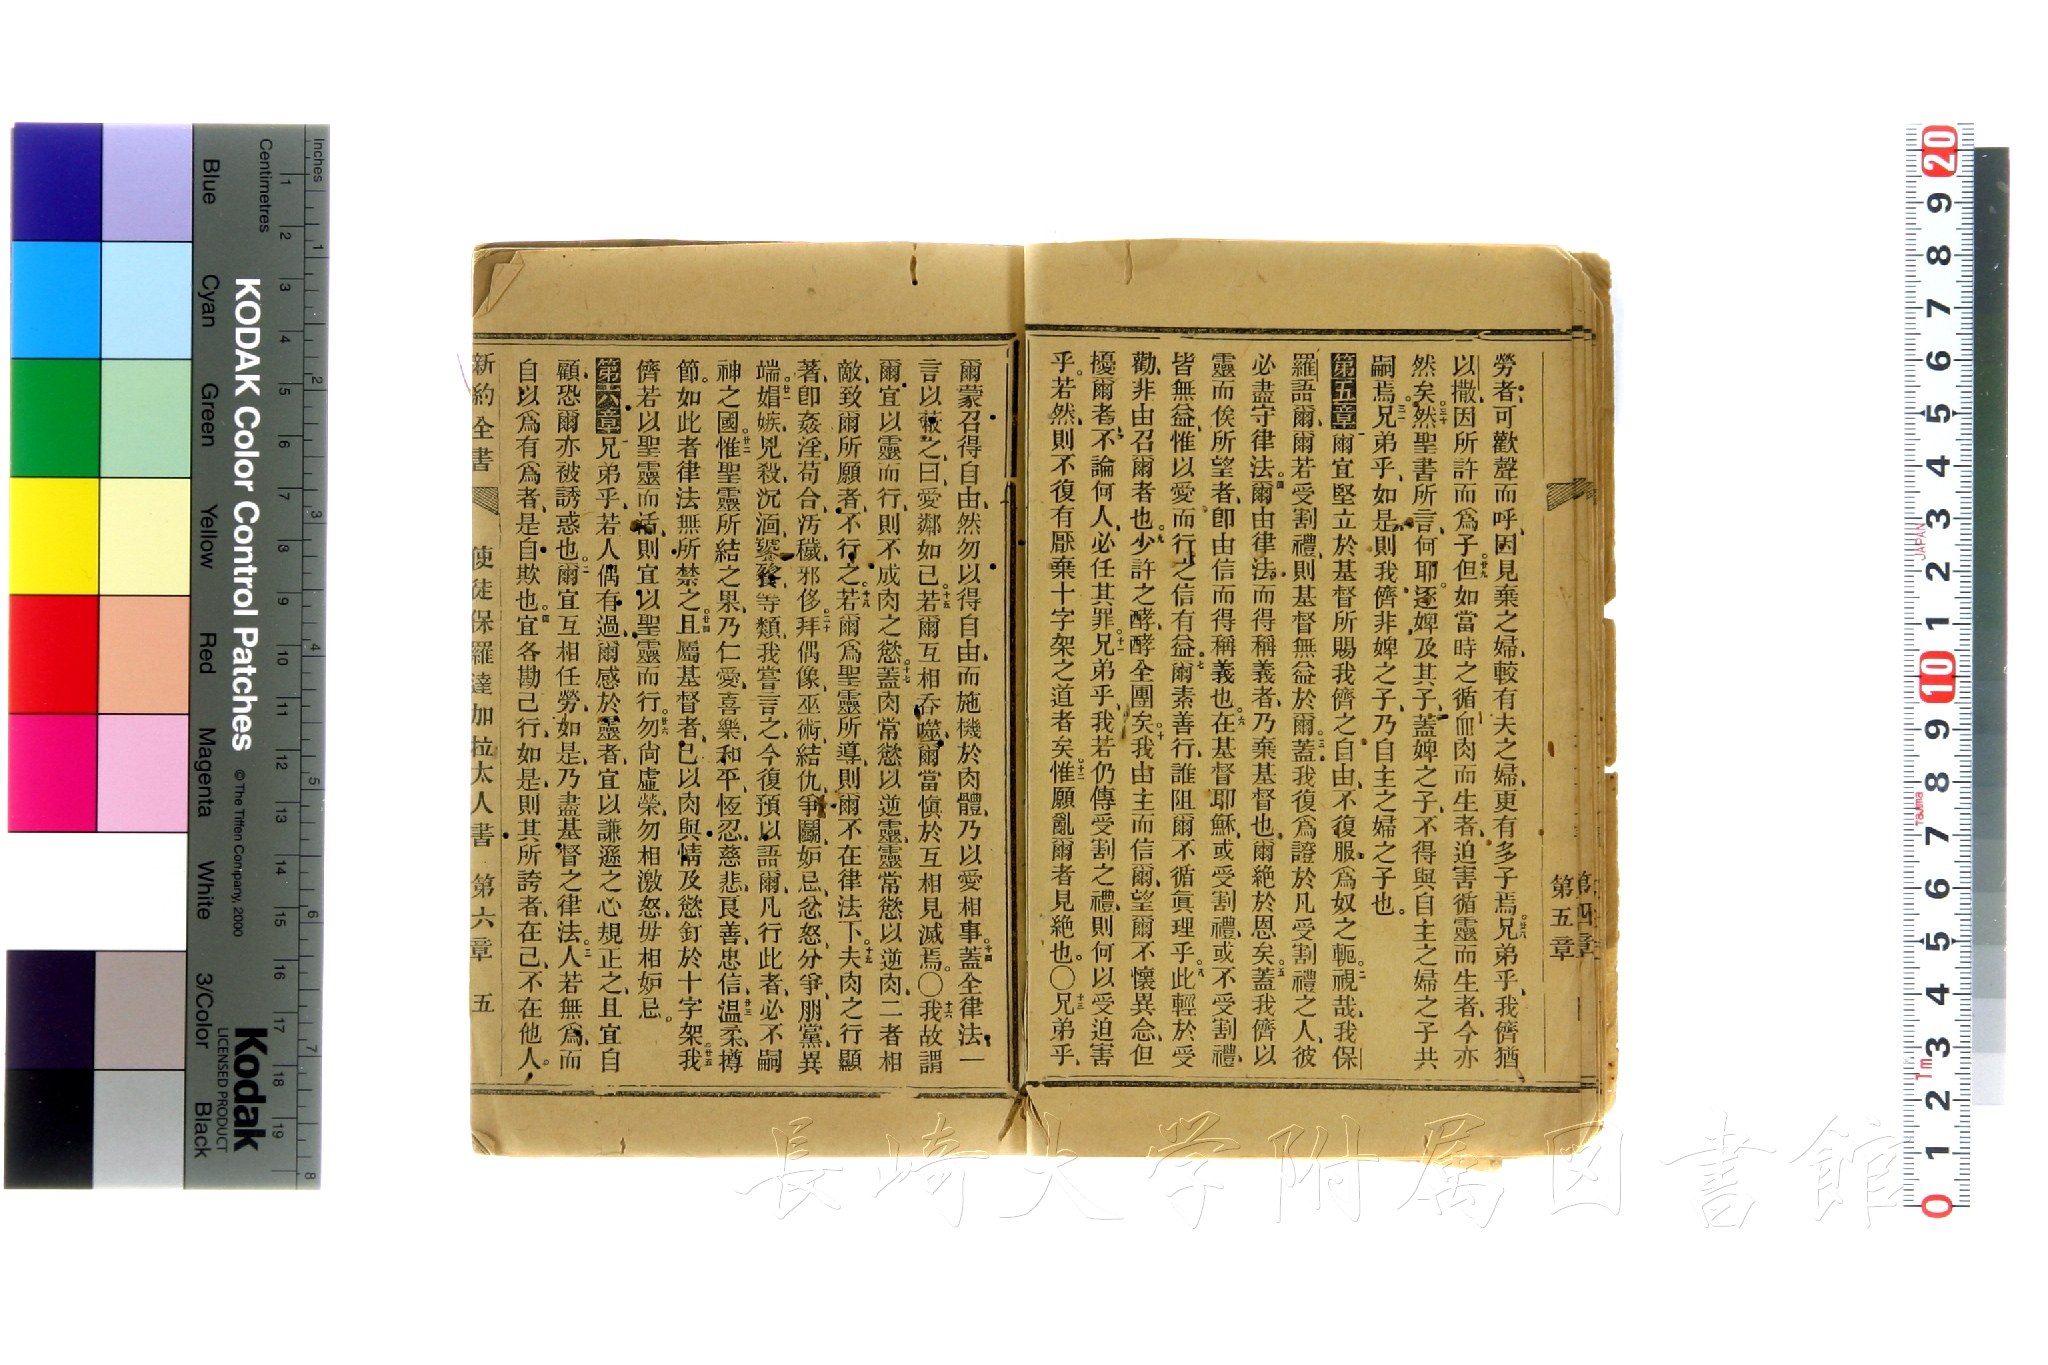 勞者、可歡聲而呼、因見棄之婦、較有夫之婦、更有多子焉。廿八兄弟乎、我儕猶
以撒、因所許而爲子。廿九但如當時之循血肉而生者、迫害循靈而生者、今亦
然矣。三十然聖書所言何耶、逐婢及其子、蓋婢之子、不得與自主之婦之子共
嗣焉。三一兄弟乎、如是則我儕非婢之子、乃自主之婦之子也。
第五章 一爾宜堅立於基督所賜我儕之自由、不復服爲奴之軛。二視哉、我保
羅語爾、爾若受割禮、則基督無益於爾。三蓋我復爲證於凡受割禮之人、彼
必盡守律法。四爾由律法而得稱義者、乃棄基督也、爾絶於恩矣。五蓋我儕以
靈而俟所望者、卽由信而得稱義也。六在基督耶穌、或受割禮、或不受割禮、
皆無益、惟以愛而行之信有益。七爾素善行、誰阻爾不循眞理乎。八此輕於受
勸、非由召爾者也。九少許之酵、酵全團矣。十我由主而信爾、望爾不懷異念、但
擾爾者、不論何人、必任其罪。十一兄弟乎、我若仍傳受割之禮、則何以受迫害
乎、若然、則不復有厭棄十字架之道者矣。十二惟願亂爾者見絶也。〇十三兄弟乎、
第四章
第五章
爾蒙召得自由、然勿以得自由而施機於肉體、乃以愛相事。十四蓋全律法、一
言以蔽之、曰、愛鄰如己。十五若爾互相吞噬、爾當愼於互相見滅焉。〇十六我故謂
爾、宜以靈而行、則不成肉之慾。十七蓋肉常慾以逆靈、靈常慾以逆肉、二者相
敵、致爾所願者、不行之。十八若爾爲聖靈所導、則爾不在律法下。十九夫肉之行顯
著、卽姦淫、苟合、汚穢、邪侈、二十拜偶像、巫術、結仇、爭鬭、妒忌、忿怒、分爭、朋黨、異
端、廿一媢嫉、兇殺、沉湎、饕餮等類、我嘗言之、今復預以語爾、凡行此者、必不嗣
神之國。廿二惟聖靈所結之果、乃仁愛、喜樂、和平、恆忍、慈悲、良善、忠信、廿三温柔、樽
節。如此者、律法無所禁之。廿四且屬基督者、已以肉與情及慾釘於十字架。廿五我
儕若以聖靈而活、則宜以聖靈而行。廿六勿尙虛榮、勿相激怒、毋相妒忌。
第六章 一兄弟乎、若人偶有過、爾感於靈者、宜以謙遜之心規正之、且宜自
顧、恐爾亦被誘惑也。二爾宜互相任勞、如是、乃盡基督之律法。三人若無爲、而
自以爲有爲者、是自欺也。四宜各勘己行、如是則其所誇者、在己、不在他人。
新約全書 使徒保羅達加拉太人書 第六章 五
長崎大学附属図書館
KODAK Color Control Patches © The Tiffen Company, 2000
Kodak
LICENSED PRODUCT
Inches 1 2 3 4 5 6 7 8
Centimetres 1 2 3 4 5 6 7 8 9 10 11 12 13 14 15 16 17 18 19
Blue Cyan Green Yellow Red Magenta White 3/Color Black
20 9 8 7 6 5 4 3 2 1 10 9 8 7 6 5 4 3 2 1 0
JAPAN
Tajima
1m